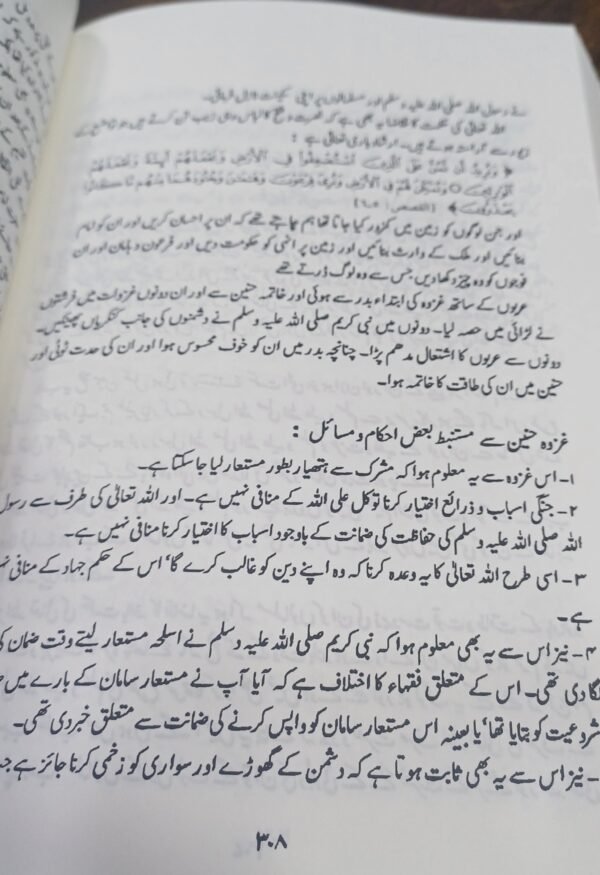 نے رسول اللہ صلی اللہ علیہ وسلم اور مسلمانوں پر اپنی سکینت نازل فرمائی۔
اللہ تعالیٰ کی حکمت کا تقاضا یہ بھی ہے کہ نصرت و فتح کا لباس وہی زیب تن کرتے ہیں جو تواضع کے
ہوتے ہیں۔ ارشاد باری تعالیٰ ہے :
﴿ وَنُرِيدُ أَن نَّمُنَّ عَلَى الَّذِينَ اسْتُضْعِفُوا فِي الْأَرْضِ وَنَجْعَلَهُمْ أَئِمَّةً وَنَجْعَلَهُمُ
الْوَارِثِينَ ○ وَنُمَكِّنَ لَهُمْ فِي الْأَرْضِ وَنُرِيَ فِرْعَوْنَ وَهَامَانَ وَجُنُودَهُمَا مِنْهُم مَّا كَانُوا
يَحْذَرُونَ ﴾ [القصص: ٥،٦]
اور جن لوگوں کو زمین میں کمزور کیا جاتا تھا ہم چاہتے تھے کہ ان پر احسان کریں اور ان کو امام
بنائیں اور ملک کے وارث بنائیں اور زمین پر انہی کو حکومت دیں اور فرعون و ہامان اور ان
فوجوں کو وہ چیز دکھادیں جس سے وہ لوگ ڈرتے تھے
عربوں کے ساتھ غزوہ کی ابتداء بدر سے ہوئی اور خاتمہ حنین سے اور ان دونوں غزوات میں فرشتوں
نے لڑائی میں حصہ لیا۔ دونوں میں نبی کریم صلی اللہ علیہ وسلم نے دشمنوں کی جانب کنکریاں پھینکیں۔
دونوں سے عربوں کا اشتعال مدھم پڑا۔ چنانچہ بدر میں ان کو خوف محسوس ہوا اور ان کی حدت ٹوٹی اور
حنین میں ان کی طاقت کا خاتمہ ہوا۔
غزوہ حنین سے مستنبط بعض احکام و مسائل :
۱- اس غزوہ سے یہ معلوم ہوا کہ مشرک سے ہتھیار بطور مستعار لیا جا سکتا ہے۔
۲- جنگی اسباب و ذرائع اختیار کرنا توکل علی اللہ کے منافی نہیں ہے۔ اور اللہ تعالیٰ کی طرف سے رسول
اللہ صلی اللہ علیہ وسلم کی حفاظت کی ضمانت کے باوجود اسباب کا اختیار کرنا منافی نہیں ہے۔
۳- اسی طرح اللہ تعالیٰ کا یہ وعدہ کرنا کہ وہ اپنے دین کو غالب کرے گا' اس کے حکم جہاد کے منافی
ہے۔
۴- نیز اس سے یہ بھی معلوم ہوا کہ نبی کریم صلی اللہ علیہ وسلم نے اسلحہ مستعار لیتے وقت ضمان
لگا دی تھی۔ اس کے متعلق فقہاء کا اختلاف ہے کہ آیا آپ نے مستعار سامان کے بارے میں
شروعیت کو بتایا تھا' یا بعینہ اس مستعار سامان کو واپس کرنے کی ضمانت سے متعلق خبر دی تھی۔
- نیز اس سے یہ بھی ثابت ہوتا ہے کہ دشمن کے گھوڑے اور سواری کو زخمی کرنا جائز ہے
۳۰۸